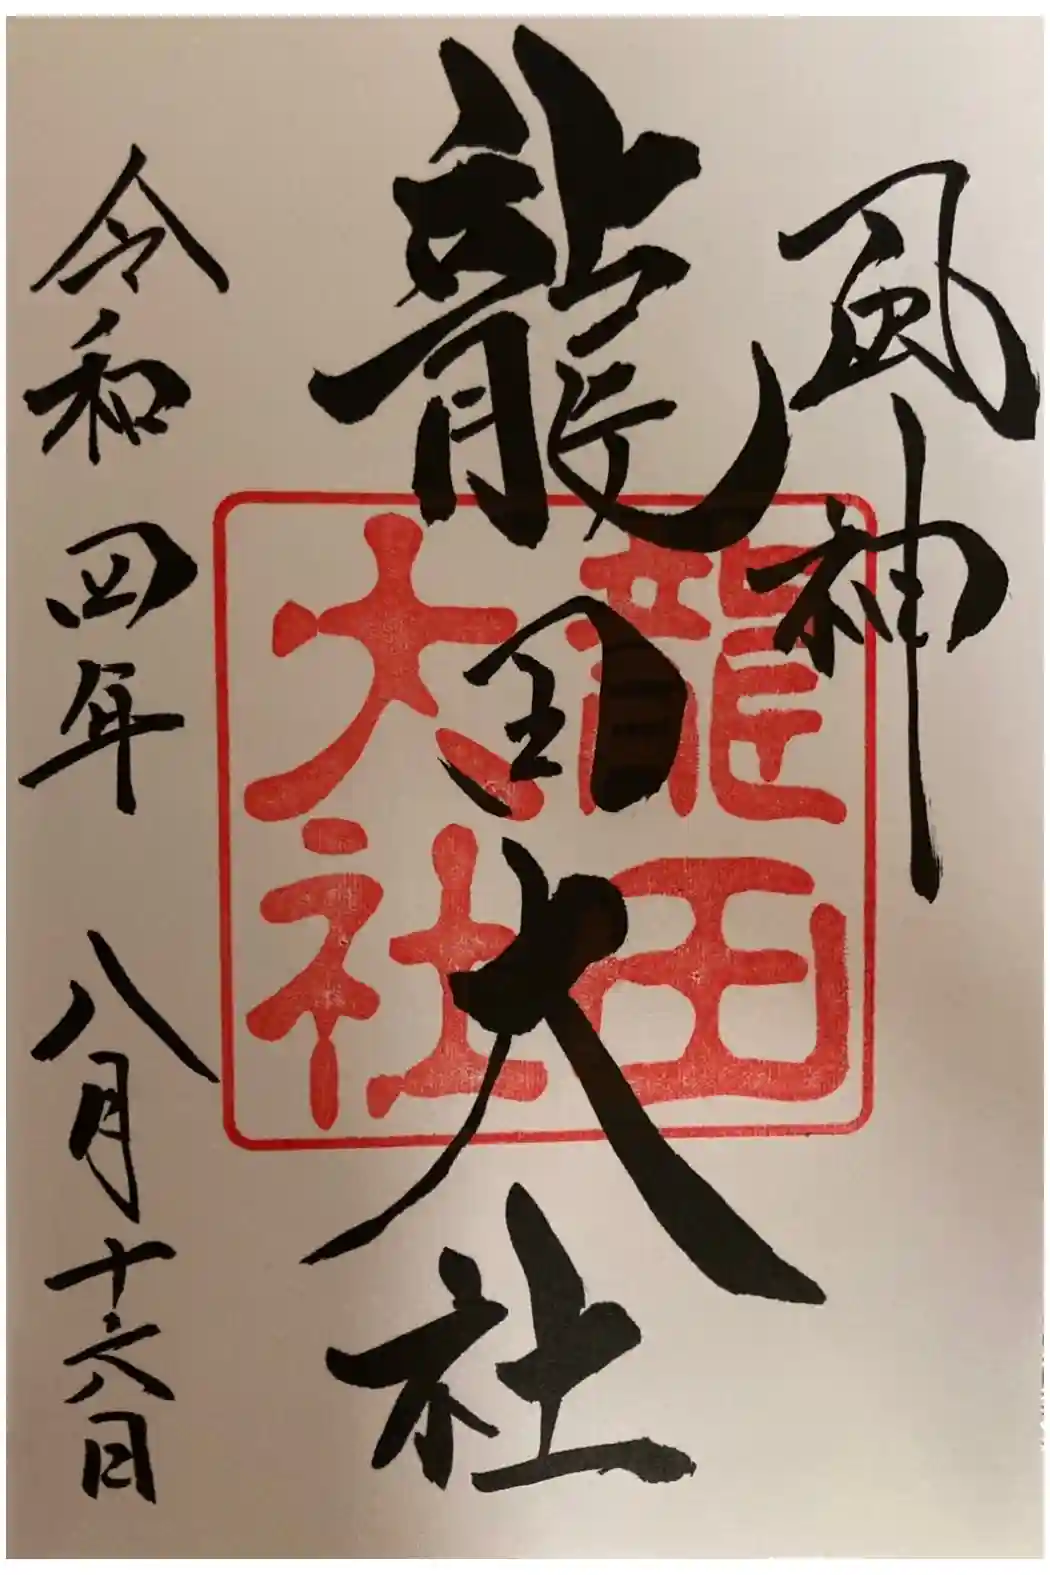 風神
龍田大社
龍田大社
令和四年 八月十六日